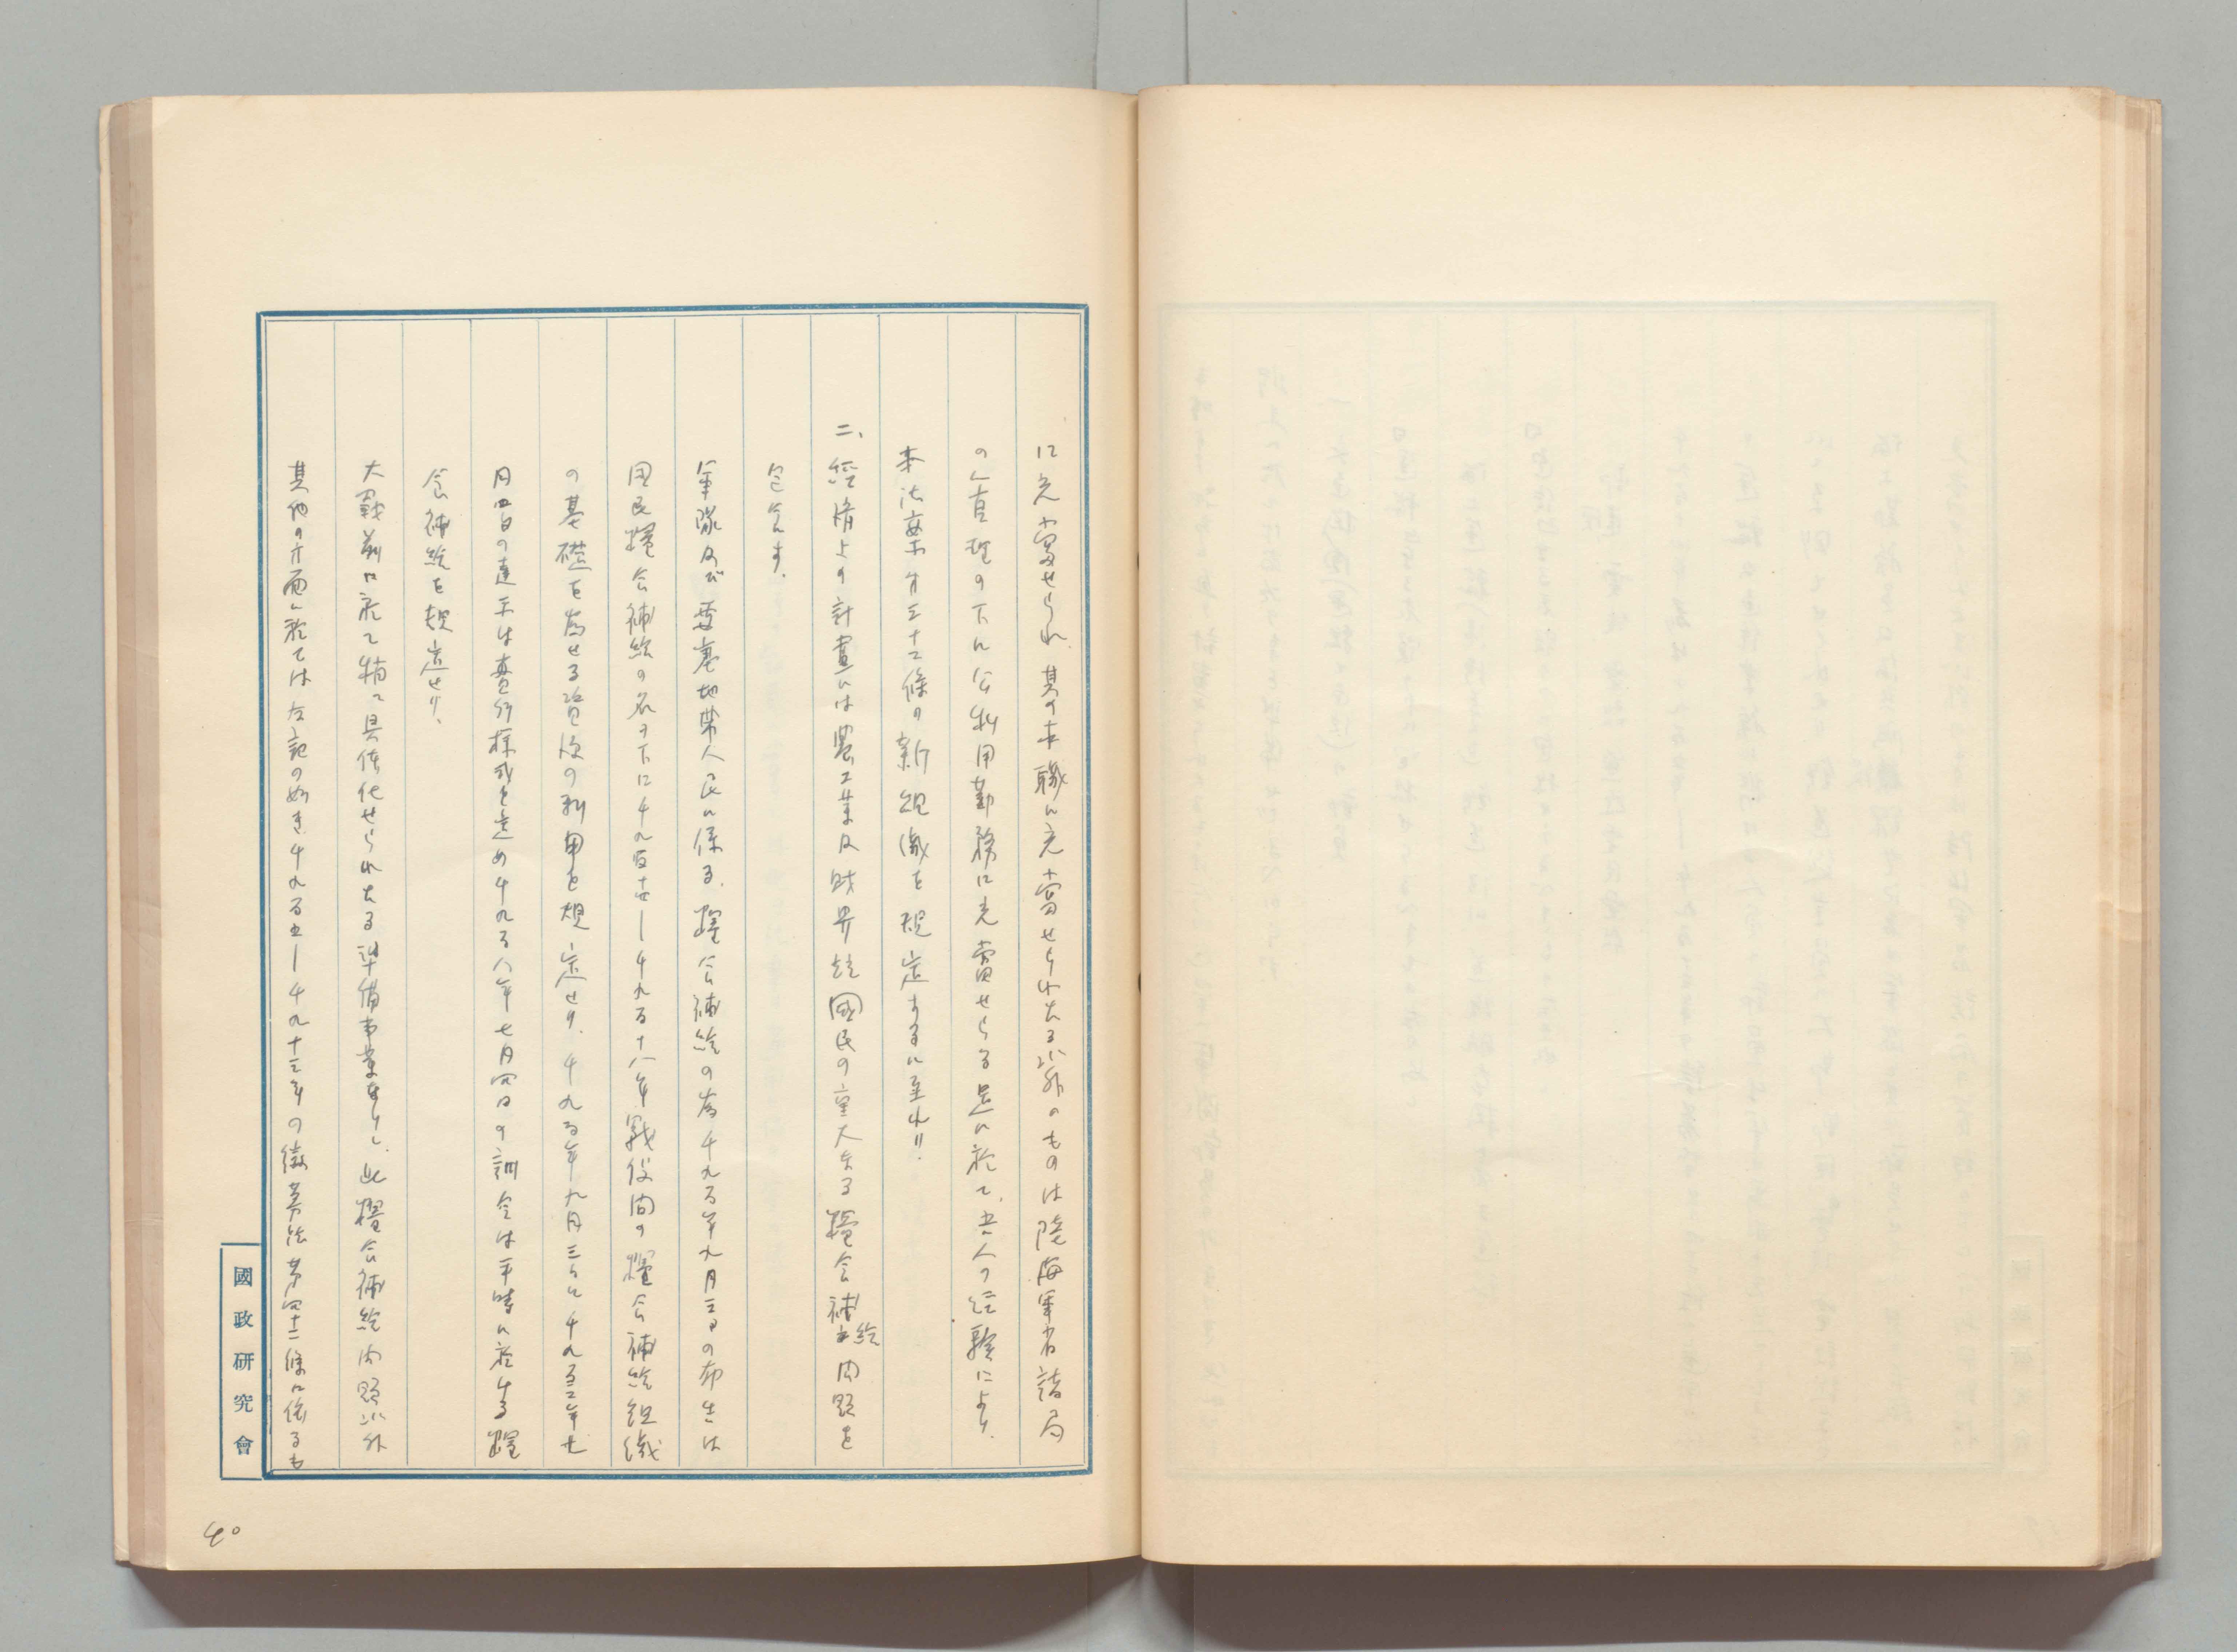 に充當せられ其の本職に充當せられたる以外のものは陸海軍省諸局
の管理の下に公私用勤務に充當せらる是に於て、吾人の経驗により、
本法案第三十二條の新組織を規定するに至れり。
二、經濟上の計畫には農工業及財界竝國民の重大なる糧食補給問題を
包含す。
軍隊及び要塞地帯人民に係る、糧食補給の為千九百年九月三日の布告は
国民糧食補給の名の下に千九百十四―千九百十八年戰役間の糧食補給組織
の基礎を為せる資源の利用を規定せり、千九百年九月三日と千九百二年七
月四日の達示は實行様式を定め千九百八年七月四日の訓令は平時に於ける糧
食補給を規定せり、
大戰前に於て稍々具体化せられたる準備事業なりし、此糧食補給問題以外
其他の方面に於ては左記の如き千九百五―千九十三年の徴募法第四十二條に依るも
國政研究會
40